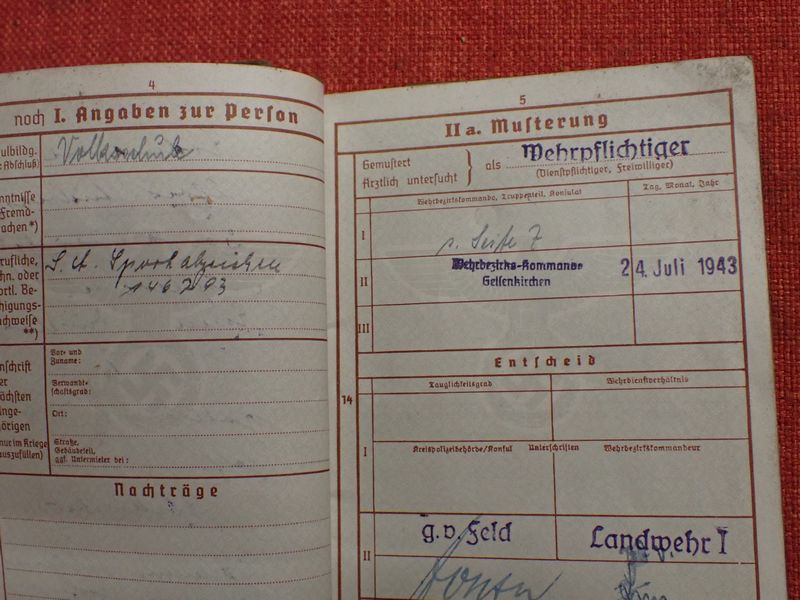 4
noch I. Angaben zur Person
ulbildg.
Abschluß)
Volksschule
nntnisse
Fremd-
achen*)
rufliche,
hn. oder
ortl. Be-
higungs-
chweise
**)
S. A. Sportabzeichen
146293
nschrift
er
ächsten
nge-
hörigen
nur im Kriege
auszufüllen)
Vor- und
Zuname:
Verwandt-
schaftsgrad:
Ort:
Straße,
Gebäudeteil,
ggf. Untermieter bei:
Nachträge
5
IIa. Musterung
Gemustert
Ärztlich untersucht
als
Wehrpflichtiger
(Dienstpflichtiger, Freiwilliger)
Wehrbezirkskommando, Truppenteil, Konsulat
Tag, Monat, Jahr
I
s. Seite 7
II
Wehrbezirks-Kommando
Gelsenkirchen
24. Juli 1943
III
Entscheid
14
Tauglichkeitsgrad
Wehrdienstverhältnis
I
Kreispolizeibehörde/Konsul
Unterschriften
Wehrbezirkskommandeur
II
g.v. Feld
Landwehr I